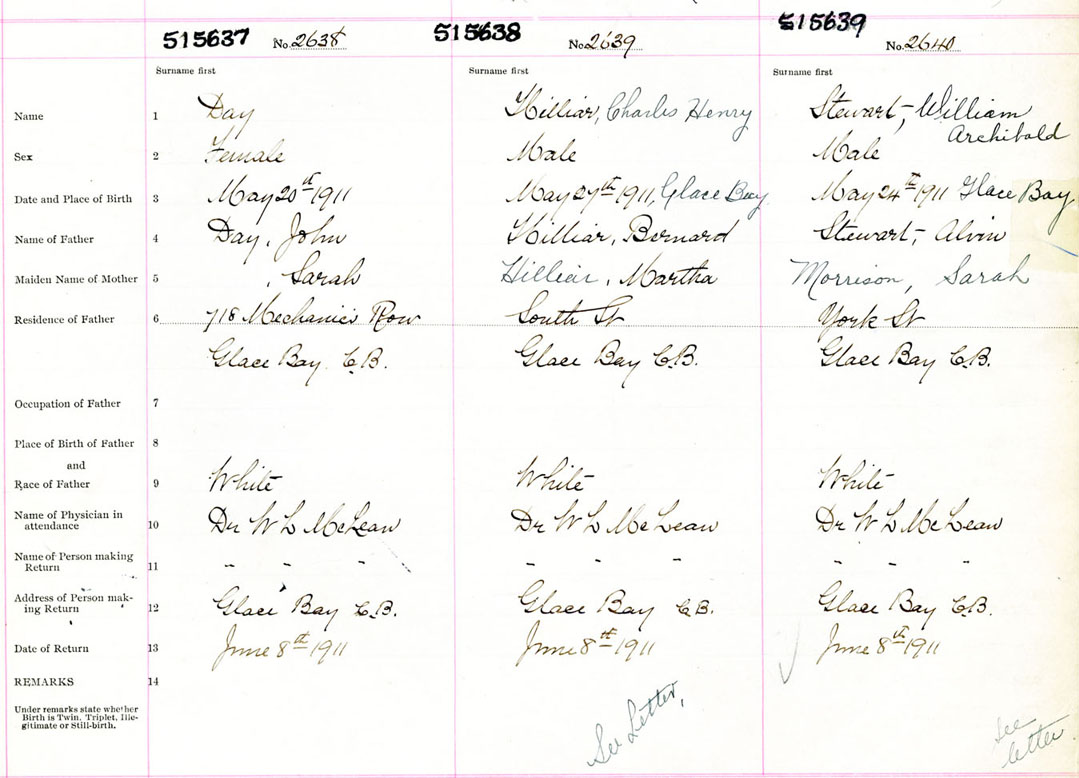 515637 No. 2638 515638 No. 2639 515639 No. 2640
Surname first Surname first Surname first
Name 1 Day Hilliar, Charles Henry Stewart, William
Archibald
Sex 2 Female Male Male
Date and Place of Birth 3 May 20th 1911 May 27th 1911, Glace Bay May 24th 1911 Glace Bay
Name of Father 4 Day, John Hilliar, Bernard Stewart, Alvin
Maiden Name of Mother 5 , Sarah Hilliar, Martha Morrison, Sarah
Residence of Father 6 718 Mechanics Row South St York St
Glace Bay C.B. Glace Bay C.B. Glace Bay C.B.
Occupation of Father 7
Place of Birth of Father 8
and
Race of Father 9 White White White
Name of Physician in
attendance 10 Dr W L McLean Dr W L McLean Dr W L McLean
Name of Person making
Return 11 " " " " " " " " "
Address of Person mak-
ing Return 12 Glace Bay C.B. Glace Bay C.B. Glace Bay C.B.
Date of Return 13 June 8th 1911 June 8th 1911 June 8th 1911
REMARKS 14
Under remarks state whether
Birth is Twin, Triplet, Ille-
gitimate or Still-birth.
See Letter,
see
letter